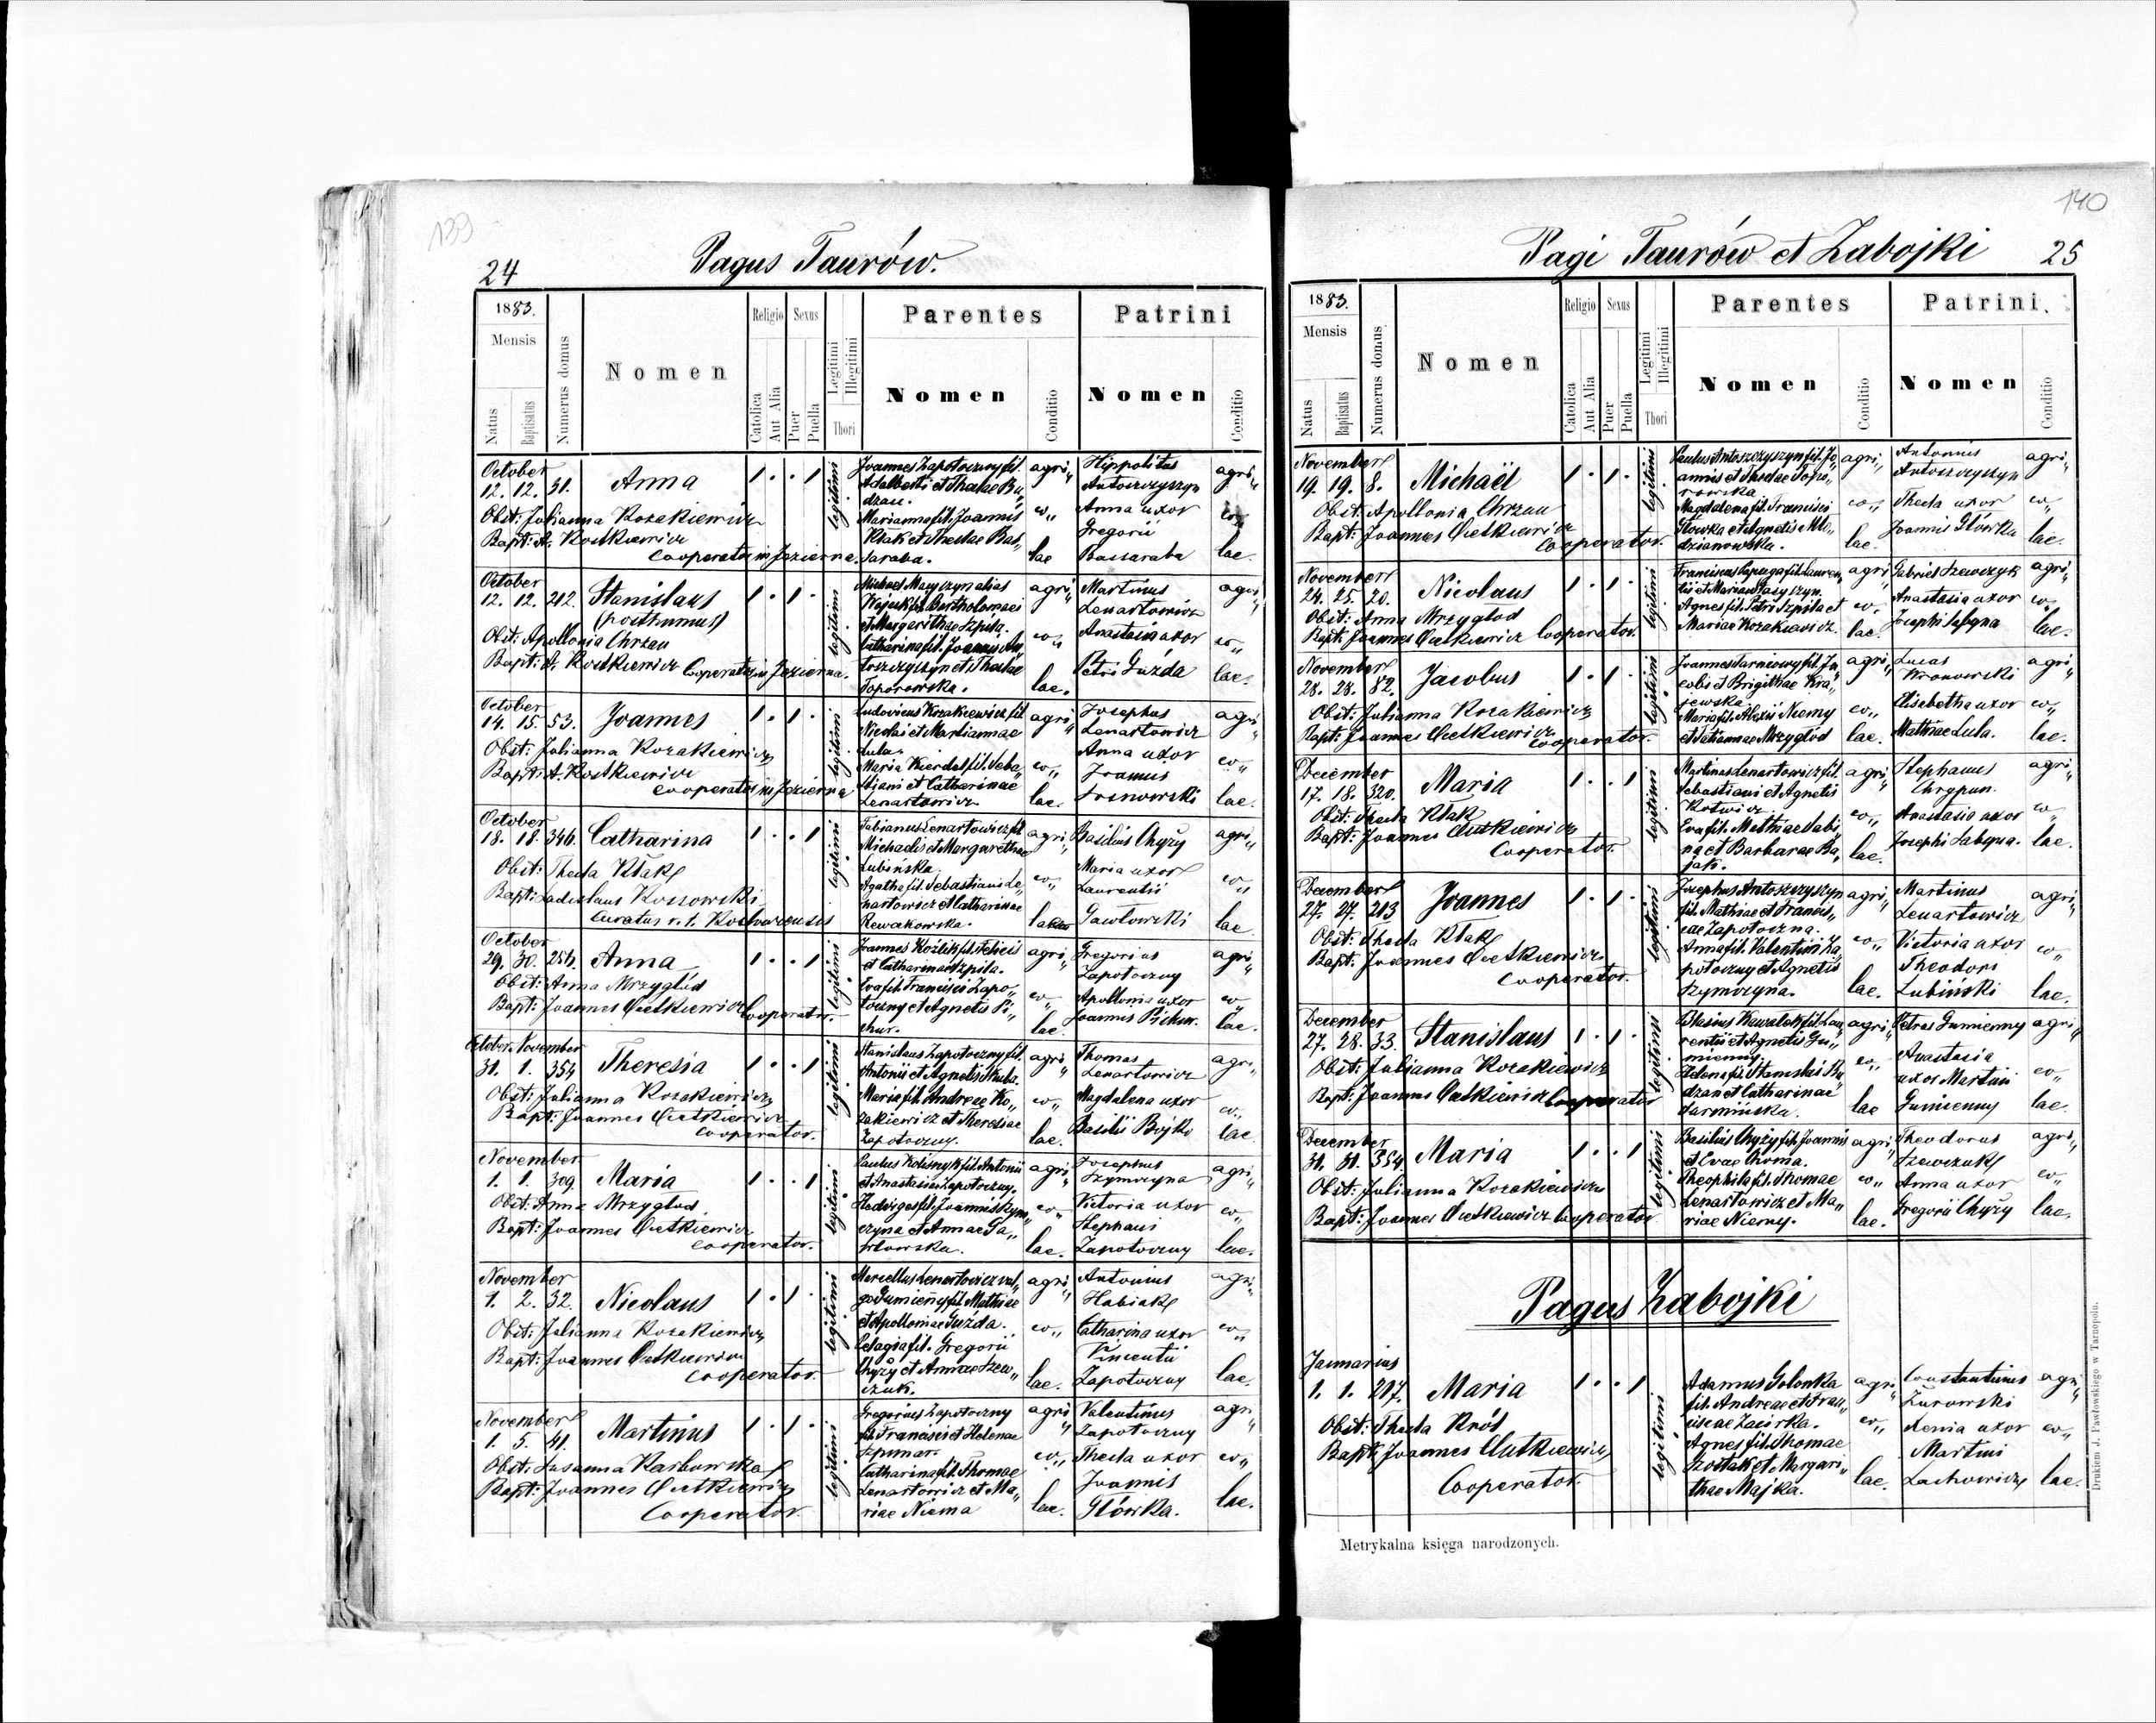 139
24
Pagus Taurów.
1883.
Mensis
Natus
Baptisatus
Numerus domus
Nomen
Religio
Catolica
Aut Alia
Sexus
Puer
Puella
Legitimi
Illegitimi
Thori
Parentes
Nomen
Conditio
Patrini
Nomen
Conditio
October
12. 12. 31. Anna 1 . . 1 legitimi
Obst: Julianna Kozakiewicz
Bapt: A. Kostkiewicz
Cooperator in Jezierna.
Joannes Zapotoczny fil.
Adalberti et Theclae Bu„
dzan.
Marianna fil. Joannis
Kłak et Theclae Bas„
saraba.
agri„
co„
lae
Hippolitus
Antoszczyszyn
Anna uxor
Gregorii
Bassaraba
agri„
co„
lae.
October
12. 12. 212. Stanislaus 1 . 1 . legitimi
(posthumus)
Obst: Apollonia Chrzan
Bapt: A. Kostkiewicz Cooperator in Jezierna.
Michael Maryszczyn alias
Wojcik fil. Bartholomaei
et Margarithae Szpita.
Catharina fil. Joannis An„
toszczyszyn et Theclae
Toporowska.
agri„
co„
lae.
Martinus
Lenartowicz
Anastasia uxor
Petri Guzda
agri„
co„
lae.
October
14. 15. 53. Joannes 1 . 1 . legitimi
Obst: Julianna Kozakiewicz
Bapt: A. Kostkiewicz
Cooperator in Jezierna
Ludovicus Kozakiewicz fil.
Nicolai et Mariannae
Lula.
Maria Kierdal fil. Seba„
stiani et Catharinae
Lenartowicz.
agri„
co„
lae.
Josephus
Lenartowicz
Anna uxor
Joannis
Sosnowski
agri„
co„
lae.
October
18. 18. 346. Catharina 1 . . 1 legitimi
Obst: Thecla Kłak
Bapt: Ladislaus Kossowski
Curatus r. l.
Fabianus Lenartowicz fil.
Michaelis et Margarethae
Lubińska.
Agatha fil. Sebastiani Le„
nartowicz et Catharinae
Rewakowska.
agri„
co„
Basilius Chyży
Maria uxor
Laurentii
Gawłowski
agri„
co„
lae.
October
29. 30. 256. Anna 1 . . 1 legitimi
Obst: Anna Mrzygłód
Bapt: Joannes Cietkiewicz Cooperator.
Joannes Koźlik fil. Felicis
et Catharinae Szpita.
Eva fil. Francisci Zapo„
toczny et Agnetis Pi„
chur.
agri„
co„
lae.
Gregorius
Zapotoczny
Apollonia uxor
Joannis Pichur.
agri„
co„
lae.
October November
31. 1. 354 Theresia 1 . . 1 legitimi
Obst: Julianna Kozakiewicz
Bapt: Joannes Cietkiewicz
Cooperator.
Stanislaus Zapotoczny fil.
Antonii et Agnetis Skuba.
Maria fil. Andreae Ko„
zakiewicz et Theresiae
Zapotoczny.
agri„
co„
lae.
Thomas
Lenartowicz
Magdalena uxor
Basilii Bojko
agri„
co„
lae.
November
1. 1. 309 Maria 1 . . 1 legitimi
Obst: Anna Mrzygłud.
Bapt: Joannes Cietkiewicz
Cooperator.
Paulus Koliśnyk fil. Antonii
et Anastasiae Zapotoczny.
Hedviges fil. Joannis Szym„
czyna et Annae Ga„
włowska.
agri„
co„
lae.
Josephus
Szymczyna
Victoria uxor
Stephani
Zapotoczny
agri„
co„
lae.
November
1. 2. 32. Nicolaus 1 . 1 . legitimi
Obst: Julianna Kozakiewicz
Bapt: Joannes Cietkiewicz
Cooperator.
Marcellus Lenartowicz vul„
go Gumienny fil. Mathiae
et Apolloniae Guzda.
Pelagia fil. Gregorii
Chyży et Annae Szew„
czuk.
agri„
co„
lae.
Antonius
Habiak
Catharina uxor
Vincentii
Zapotoczny
agri„
co„
lae.
November
1. 5. 41. Martinus 1 . 1 . legitimi
Obst: Susanna Karbowska
Bapt: Joannes Cietkiewicz
Cooperator.
Gregorius Zapotoczny
fil. Francisci et Helenae
Szpunar.
Catharina fil. Thomae
Lenartowicz et Ma„
riae Niema
agri„
co„
lae.
Valentinus
Zapotoczny
Thecla uxor
Joannis
Główka.
agri
co„
lae.
140
Pagi Taurów et Zabojki 25
1883.
Mensis
Natus
Baptisatus
Numerus domus
Nomen
Religio
Catolica
Aut Alia
Sexus
Puer
Puella
Legitimi
Illegitimi
Thori
Parentes
Nomen
Conditio
Patrini.
Nomen
Conditio
November
19. 19. 8. Michaël 1 . 1 . legitimi
Obst: Apollonia Chrzan
Bapt: Joannes Cietkiewicz
Cooperator.
Paulus Antoszczyszyn fil. Jo„
annis et Theclae Topo„
rowska
Magdalena fil. Francisci
Główka et Agnetis Mło„
dzianowska.
agri„
co„
lae.
Antonius
Antoszczyszyn
Thecla uxor
Joannis Główka
agri„
co„
lae.
November
24. 25. 20. Nicolaus 1 . 1 . legitimi
Obst: Anna Mrzygłod
Bapt: Joannes Cietkiewicz Cooperator.
Franciscus Capuga fil. Lauren„
tii et Mariae Stasyszyn.
Agnes fil. Petri Szpita et
Mariae Kozakiewicz.
agri„
co„
lae.
Gabriel Szewczyk
Anastasia uxor
Josephi Labyna
agri„
co„
lae.
November
28. 28. 82. Jacobus 1 . 1 . legitimi
Obst: Julianna Kozakiewicz
Bapt: Joannes Cietkiewicz
Cooperator.
Joannes Tarniowy fil. Ja„
cobi et Brigithae Kra„
jewska.
Maria fil. Alexii Niemy
et Tatiannae Mrzygłód
agri„
co„
lae.
Lucas
Wronowski
Elisabetha uxor
Mathiae Lula.
agri„
co„
lae.
December
17. 18. 320. Maria 1 . . 1 legitimi
Obst: Thecla Kłak
Bapt: Joannes Cietkiewicz
Cooperator.
Martinus Lenartowicz fil.
Sebastiani et Agnetis
Kotwicz.
Eva fil. Mathiae Labi„
na et Barbarae Ba„
jak.
agri„
co„
lae.
Stephanus
Chrypun.
Anastasia uxor
Josephi Labyna.
agri„
co„
lae.
December
27. 27. 213 Joannes 1 . 1 . legitimi
Obst: Thecla Kłak
Bapt: Joannes Cietkiewicz
Cooperator.
Josephus Antoszczyszyn
fil. Mathiae et Francis„
cae Zapotoczna.
Anna fil. Valentini Za„
potoczny et Agnetis
Szymczyna.
agri„
co„
lae.
Martinus
Lenartowicz
Victoria uxor
Theodori
Lubiński
agri„
co„
lae.
December
27. 28. 33. Stanislaus 1 . 1 . legitimi
Obst: Julianna Kozakiewicz
Bapt: Joannes Cietkiewicz Cooperator
Blasius Kawalok fil. Lau„
rentii et Agnetis Gu„
mienny.
Helena fil. Stanislai Bu„
dzan et Catharinae
Sarmińska.
agri„
co„
lae
Petrus Gumienny
Anastasia
uxor Martini
Gumienny
agri„
co„
lae.
December
31. 31. 354. Maria 1 . . 1 legitimi
Obst: Julianna Kozakiewicz
Bapt: Joannes Cietkiewicz Cooperator
Basilius Chyży fil. Joannis
et Evae Choma.
Theophila fil. Thomae
Lenartowicz et Ma„
riae Niemy.
agri„
co„
lae.
Theodorus
Szewczuk
Anna uxor
Gregorii Chyży
agri„
co„
lae.
Pagus Zabojki
Januarius
1. 1. 217. Maria 1 . . 1 legitimi
Obst: Thecla Król
Bapt: Joannes Cietkiewicz
Cooperator.
Adamus Golonka
fil. Andreae et Fran„
ciscae Zacirka.
Agnes fil. Thomae
Szostak et Margari„
thae Majka.
agri„
co„
lae.
Constantinus
Żurowski
Xenia uxor
Martini
Lachowicz
agri„
co„
lae.
Metrykalna księga narodzonych.
Drukiem J. Pawłowskiego w Tarnopolu.